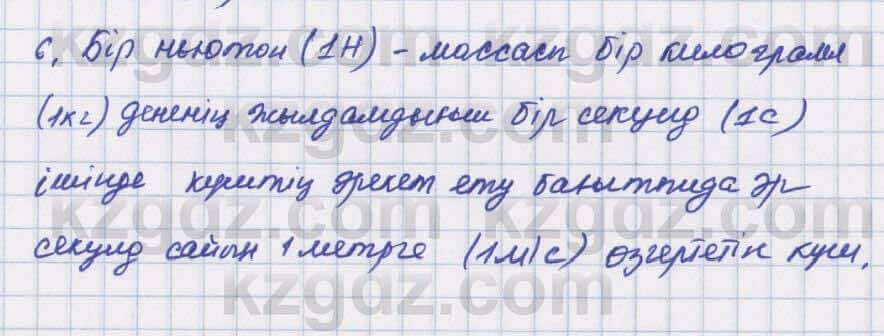 6. Бір ньютон (1Н) - массасы бір килограмм
(1кг) дененің жылдамдығын бір секунд (1с)
ішінде күштің әрекет ету бағытында әр
секунд сайын 1 метрге (1м/с) өзгертетін күш.
kzgdz.com